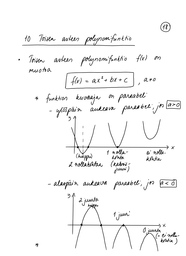 18
10. Toisen asteen polynomifunktio
• Toisen asteen polynomifunktio f(x) on
muotoa
f(x) = ax² + bx + c , a≠0
* funktion kuvaaja on paraabeli
- ylöspäin aukeava paraabeli, jos a>0
y
x
(huippu)
2 nollakohtaa
1 nolla-
kohta
ei nolla-
kohtia
- alaspäin aukeava paraabeli, jos a<0
y
2 juurta
1 juuri
0 juurta
(= ei nolla-
kohtia)
x
*